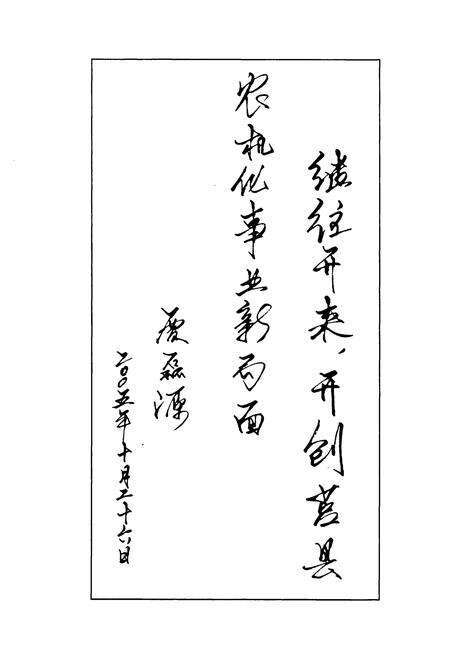 继往开来，开创莒县
农机化事业新局面
磊源
二〇〇五年十月二十六日